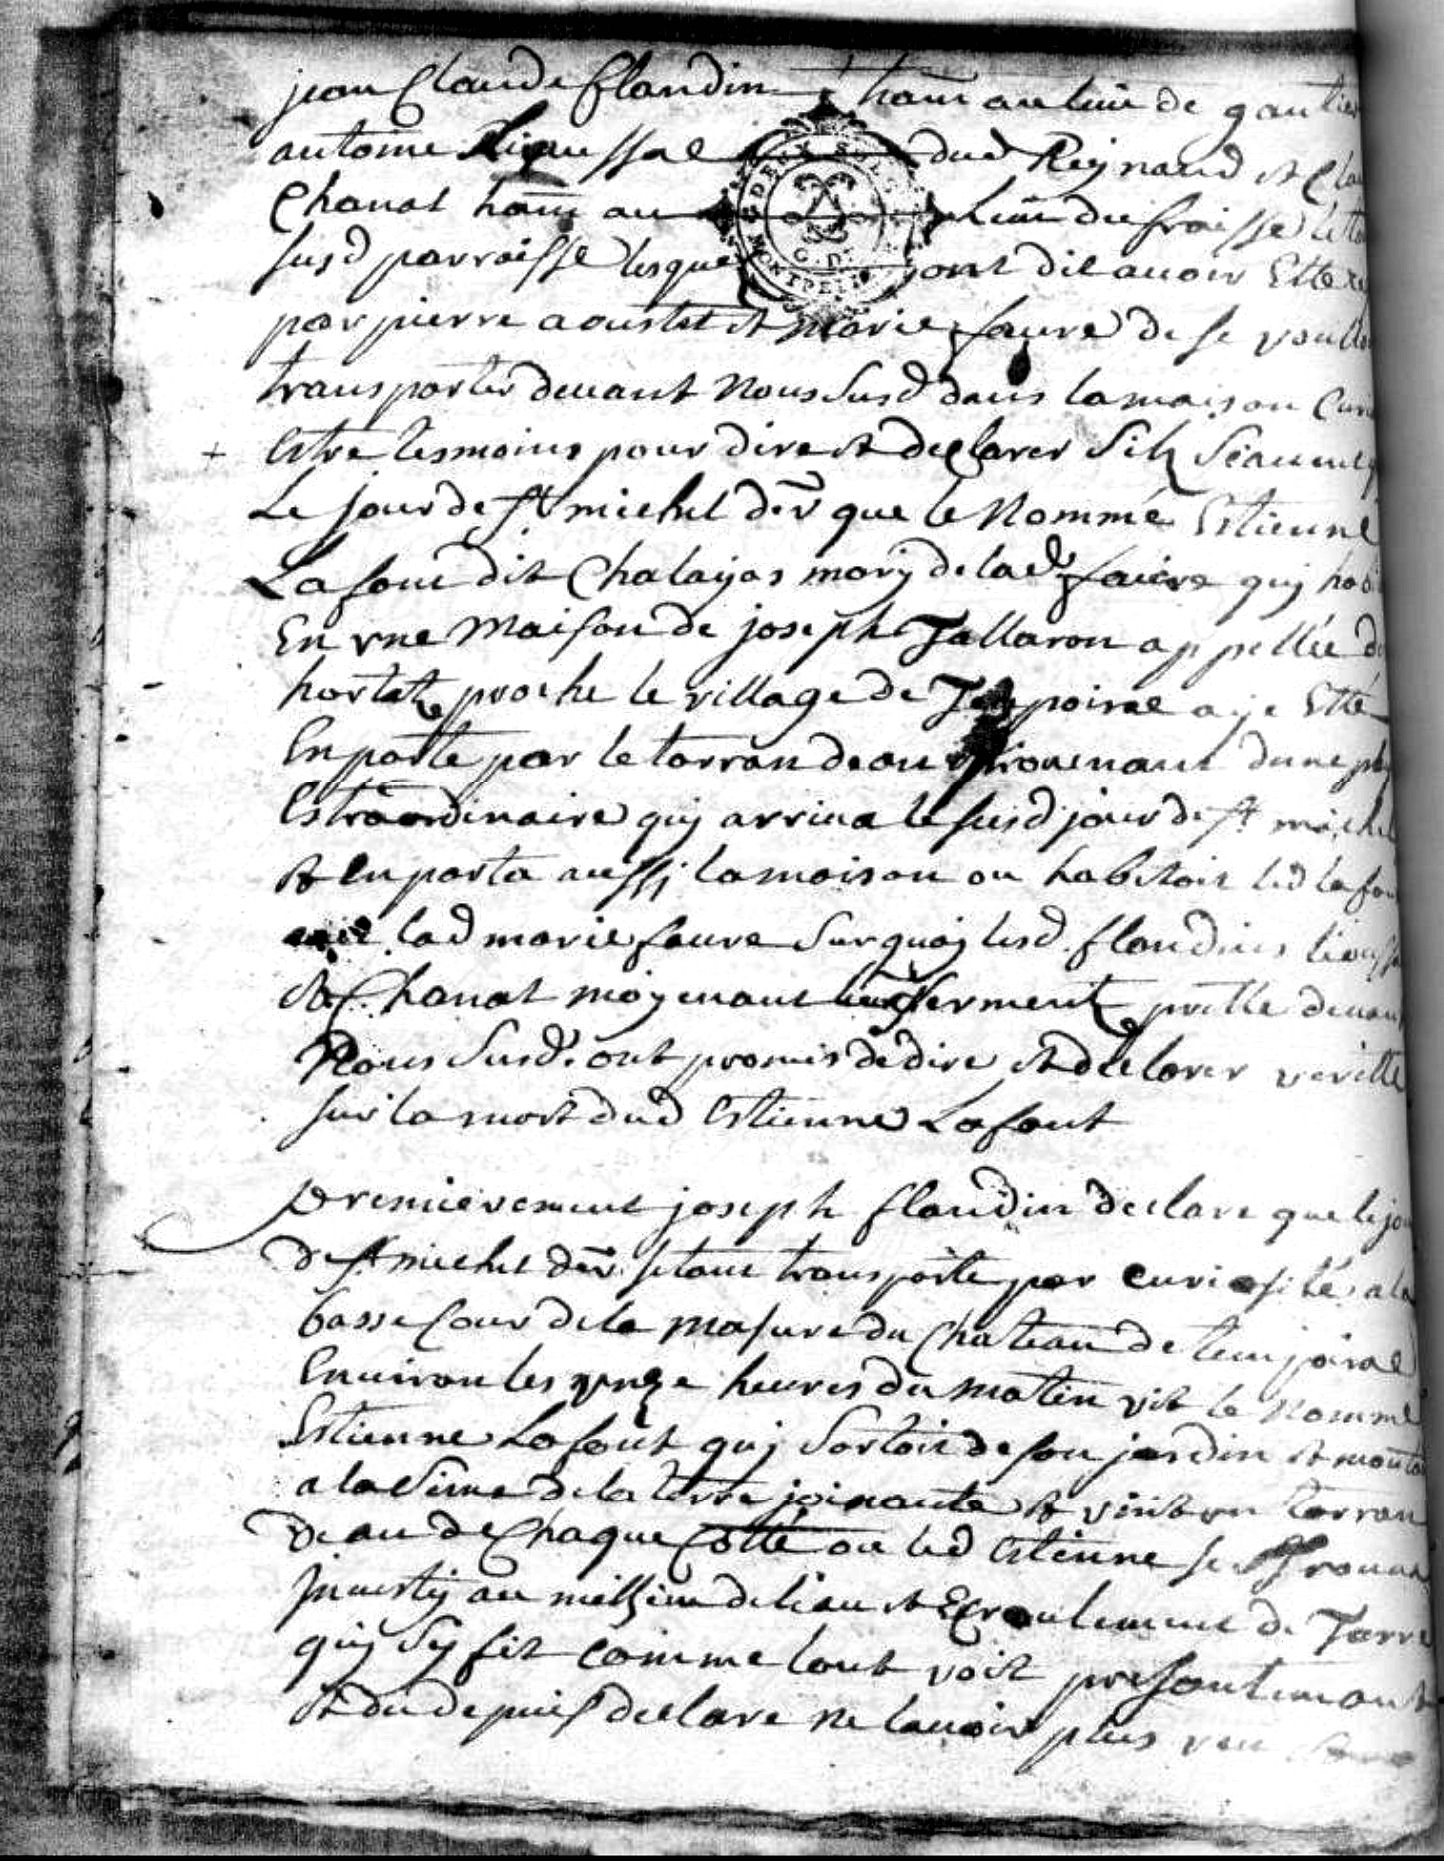 jean Claude flandin ham au lieu de gautier
antoine lieaussac dud Reynaud et Clau
Chanat ham au lieu du fraisse
susd parroisse lesque sont dit avoir Etté
DEUX SOLS
G. DE MONTPELLIER
par pierre aoustet et marie faure de se voulloir
transporter devant Nous susd dans la maison Cur
Estre tesmoins pour dire et declarer Silz
Le jour de St michel der que le Nommé Estienne
Lafont dit Chalayas mary de lade faure quy
En vne Maison de joseph Tallaron appellée d
hortalz proche le village de poirae aye Etté
Enporté par le torran deau provenant dune
Estraordinaire quy arriua le susd jour de St michel
et enporta aussj la maison ou habitoit led lafon
avec lad marie faure Sur quoy lesd. flandins
et Chanat moyenant leur serment pretté devan
Nous Susd. ont promis de dire et declarer veritté
sur la mort dud Estienne Lafont
premierement joseph flandin declare que le jou
de St michel der. setant transporté par curiosité a la
basse Cour de la masure du Chateau de
Environ les vnze heures du matin vit le nommé
Estienne Lafont quj Sortoit de son jardin et
a la Sime de la terre joinante et vint vn torran
deau de Chaque Cotté ou led Estienne se trouva
Jnvesty au millieu de leau et Ecroulement de Terre
quy Sy fit comme lont voit presentemant
et du depuis declare ne lavoir plus veu